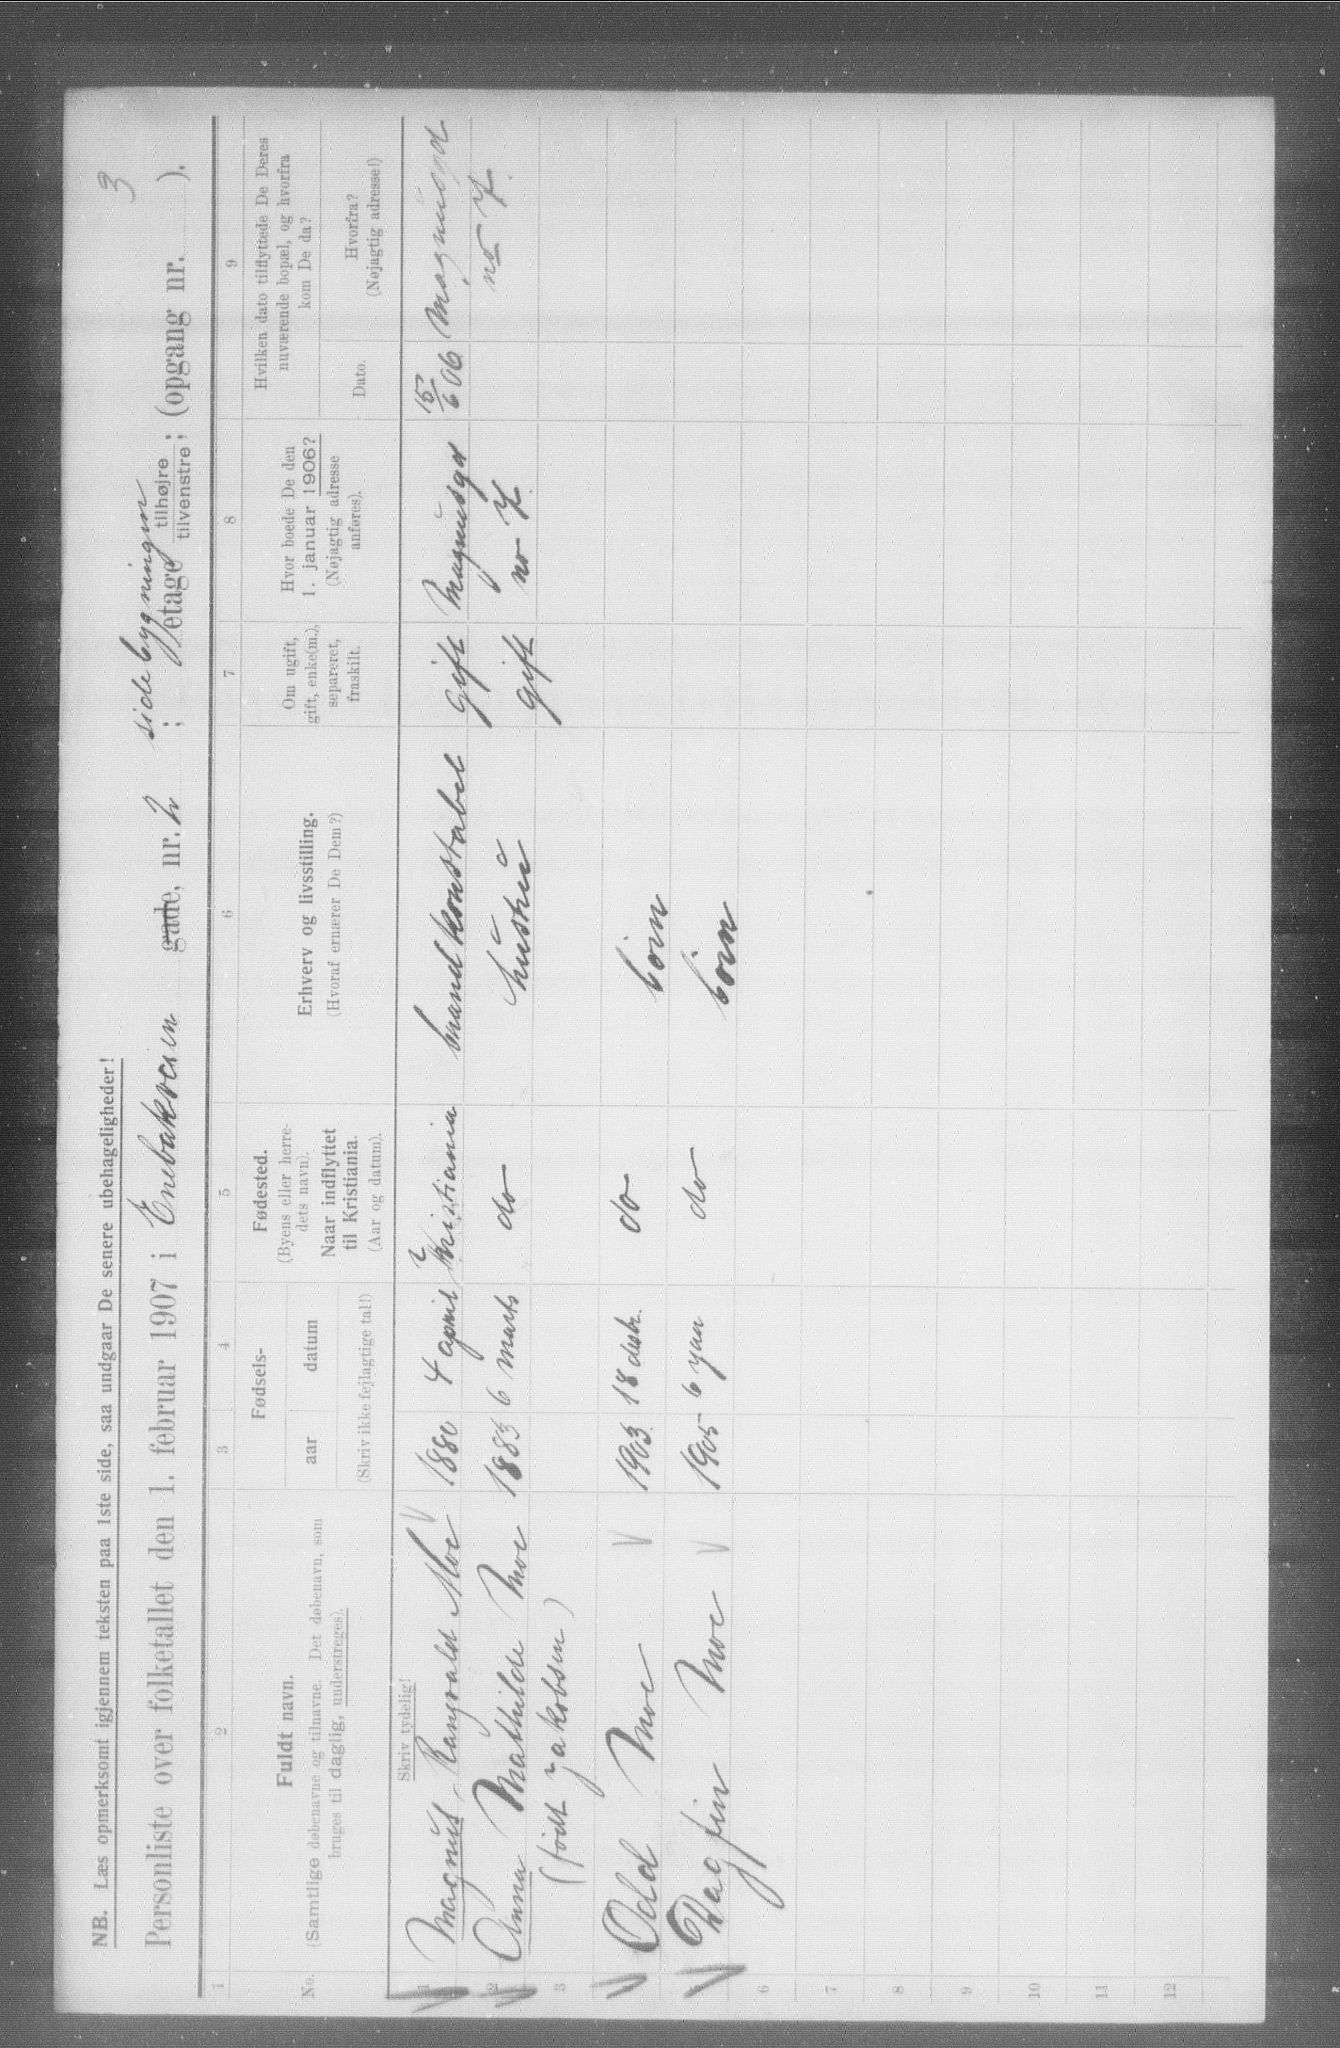 3
NB. Læs opmerksomt igjennem teksten paa 1ste side, saa undgaar De senere ubehageligheder!
sidebygningen
Personliste over folketallet den 1. februar 1907 i Enebakveien gade, nr. 2 ; etage tilhøjre tilvenstre; (opgang nr. ).
1 2 3 4 5 6 7 8 9
No. Fuldt navn. (Samtlige døbenavne og tilnavne. Det døbenavn, som bruges til daglig, understreges).
Fødsels-
aar datum
(Skriv ikke fejlagtige tal!)
Fødested. (Byens eller herredets navn). Naar indflyttet til Kristiania. (Aar og datum).
Erhverv og livsstilling. (Hvoraf ernærer De Dem?)
Om ugift, gift, enke(m.), separeret, fraskilt.
Hvor boede De den 1. januar 1906? (Nøjagtig adresse anføres).
Hvilken dato tilflyttede De Deres nuværende bopæl, og hvorfra kom De da?
Dato. Hvorfra? (Nøjagtig adresse!)
Skriv tydelig!
1 Magnus Rangvald Moe 1880 4 april Kristiania brandkonstabel gift Magnusgd 15/6 06 Magnusgd
2 Anna Mathilde Moe 1883 6 marts do hustru gift no 7 no 7.
3 (født Jakobsen)
Odd Moe 1903 18 desbr. do børn
Dagfin Moe 1905 6 jan do børn
6
7
8
9
10
11
12